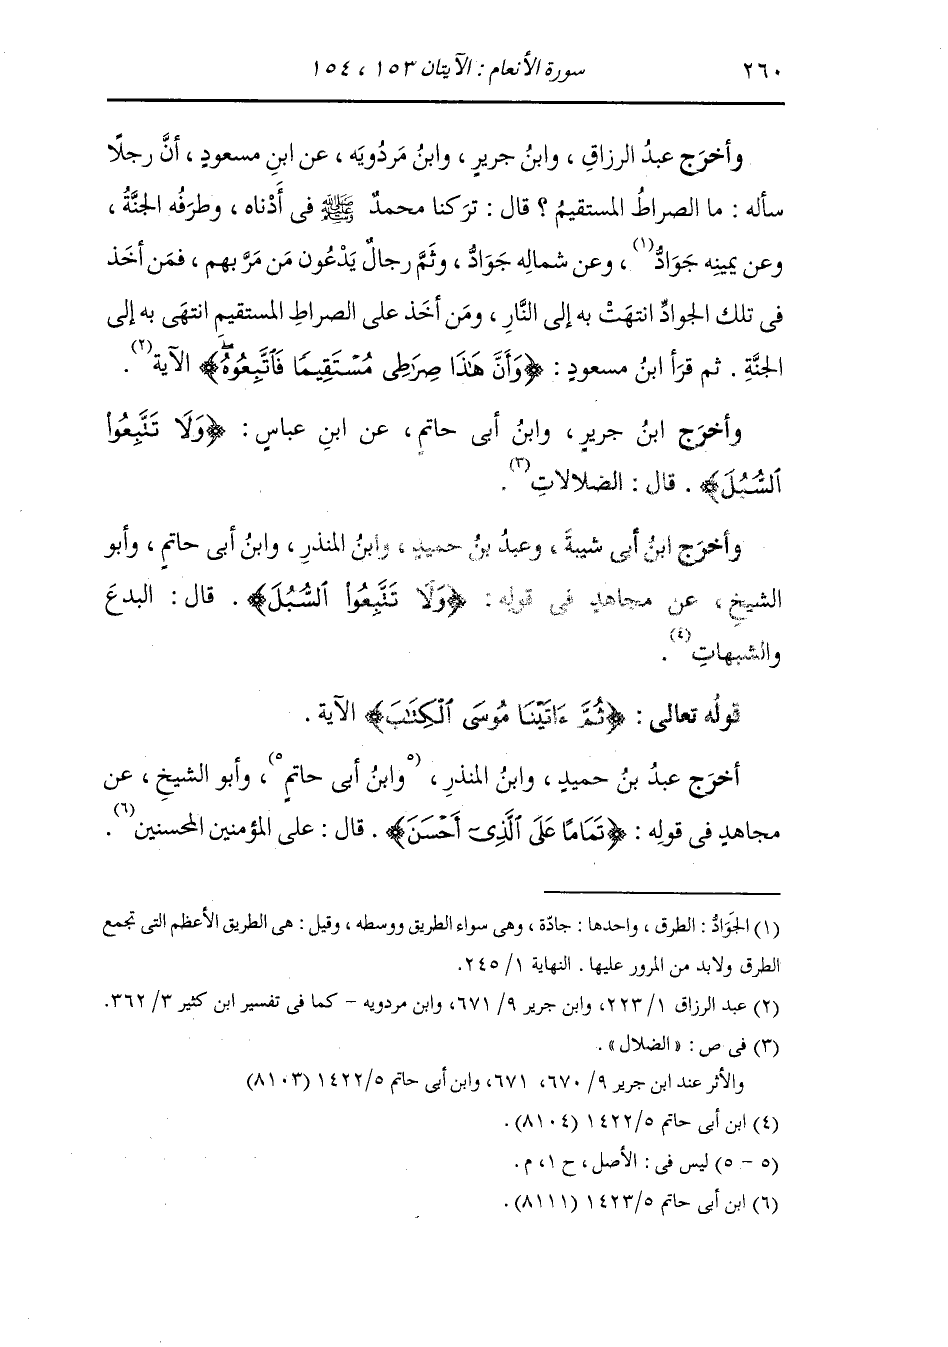 ٢٦٠ سورة الأنعام : الآيتان ١٥٣ ، ١٥٤
وأخرَج عبدُ الرزاقِ ، وابنُ جريرٍ ، وابنُ مَردُويَه ، عن ابنِ مسعودٍ ، أنَّ رجلًا
سأله : ما الصراطُ المستقيمُ ؟ قال : ترَكنا محمدٌ ﷺ فى أَدْناه ، وطرَفُه الجنَّةُ ،
وعن يمينِه جَوَادُّ(١) ، وعن شمالِه جَوَادُّ ، وثَمَّ رجالٌ يَدْعُون مَن مَرَّ بهم ، فمَن أخَذ
فى تلك الجوادِّ انتهَتْ به إلى النَّارِ ، ومَن أخَذ على الصراطِ المستقيمِ انتهَى به إلى
الجنَّةِ . ثم قرَأ ابنُ مسعودٍ : ﴿وَأَنَّ هَٰذَا صِرَٰطِى مُسْتَقِيمًا فَٱتَّبِعُوهُۖ﴾ الآية(٢) .
وأخرَج ابنُ جريرٍ ، وابنُ أبى حاتمٍ ، عن ابنِ عباسٍ : ﴿وَلَا تَتَّبِعُوا۟
ٱلسُّبُلَ﴾ . قال : الضلالاتِ(٣) .
وأخرَج ابنُ أبى شيبةَ ، وعبدُ بنُ حميدٍ ، وابنُ المنذرِ ، وابنُ أبى حاتمٍ ، وأبو
الشيخِ ، عن مجاهدٍ فى قولِه : ﴿وَلَا تَتَّبِعُوا۟ ٱلسُّبُلَ﴾ . قال : البدعَ
والشبهاتِ(٤) .
قولُه تعالى : ﴿ثُمَّ ءَاتَيْنَا مُوسَى ٱلْكِتَٰبَ﴾ الآية .
أخرَج عبدُ بنُ حميدٍ ، وابنُ المنذرِ ، (٥وابنُ أبى حاتمٍ٥) ، وأبو الشيخِ ، عن
مجاهدٍ فى قولِه : ﴿تَمَامًا عَلَى ٱلَّذِىٓ أَحْسَنَ﴾ . قال : على المؤمنين المحسنين(٦) .
(١) الجَوَادُّ : الطرق ، واحدها : جادّة ، وهى سواء الطريق ووسطه ، وقيل : هى الطريق الأعظم التى تجمع
الطرق ولابد من المرور عليها . النهاية ١/ ٢٤٥.
(٢) عبد الرزاق ١/ ٢٢٣، وابن جرير ٩/ ٦٧١، وابن مردويه – كما فى تفسير ابن كثير ٣/ ٣٦٢.
(٣) فى ص : « الضلال » .
والأثر عند ابن جرير ٩/ ٦٧٠، ٦٧١، وابن أبى حاتم ١٤٢٢/٥ (٨١٠٣)
(٤) ابن أبى حاتم ١٤٢٢/٥ (٨١٠٤).
(٥ – ٥) ليس فى : الأصل ، ح ١، م .
(٦) ابن أبى حاتم ١٤٢٣/٥ (٨١١١).